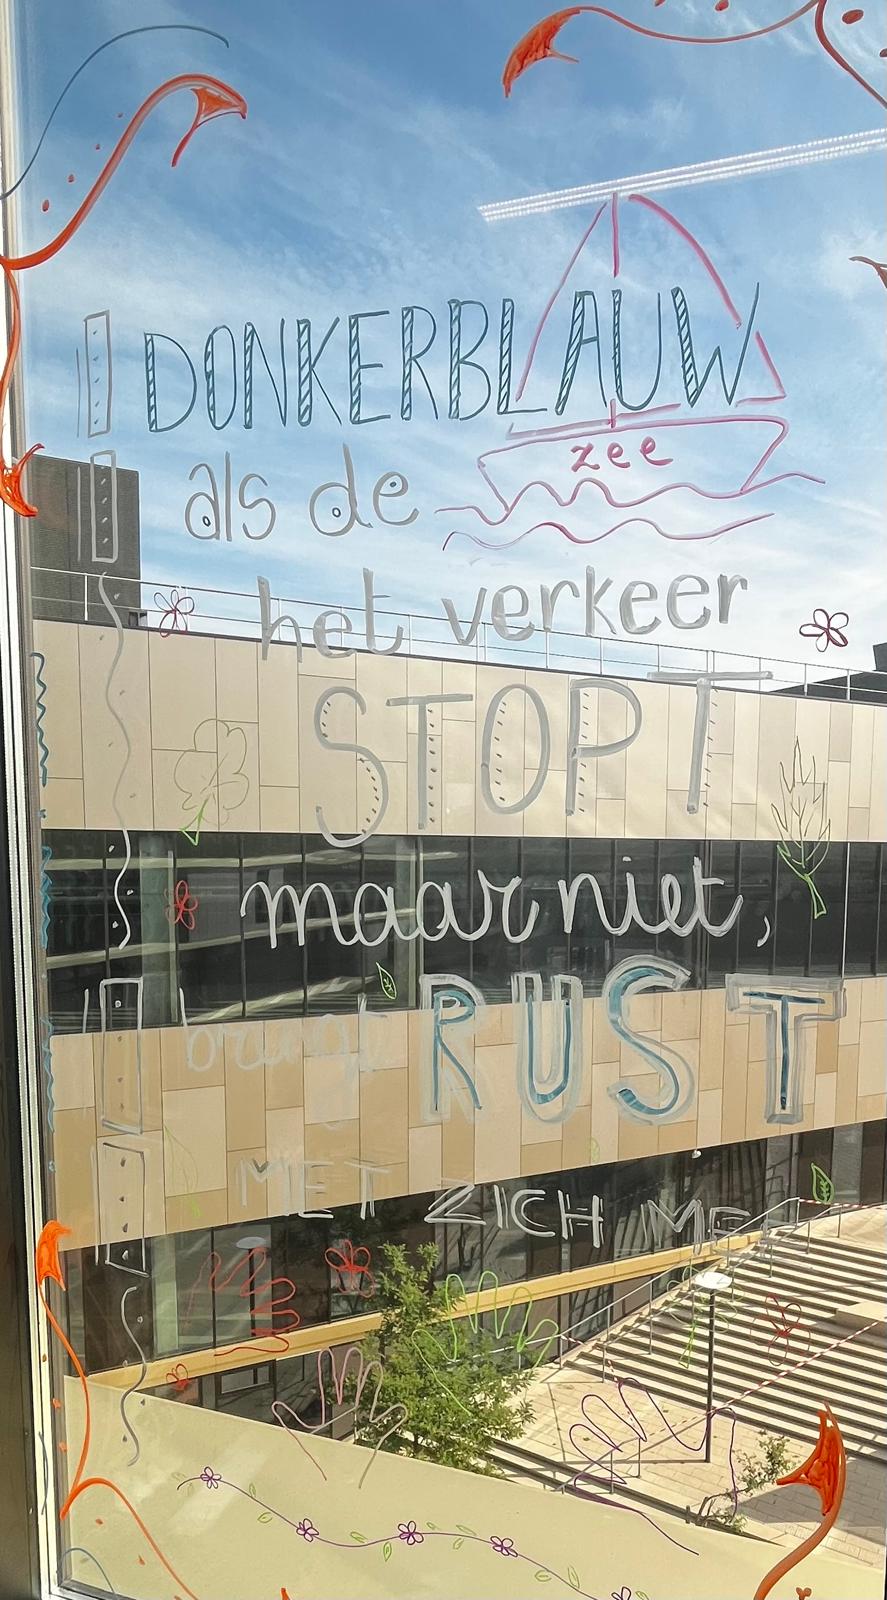 DONKERBLAUW
als de zee
het verkeer
STOPT
maar niet,
brengt RUST
MET ZICH MEE